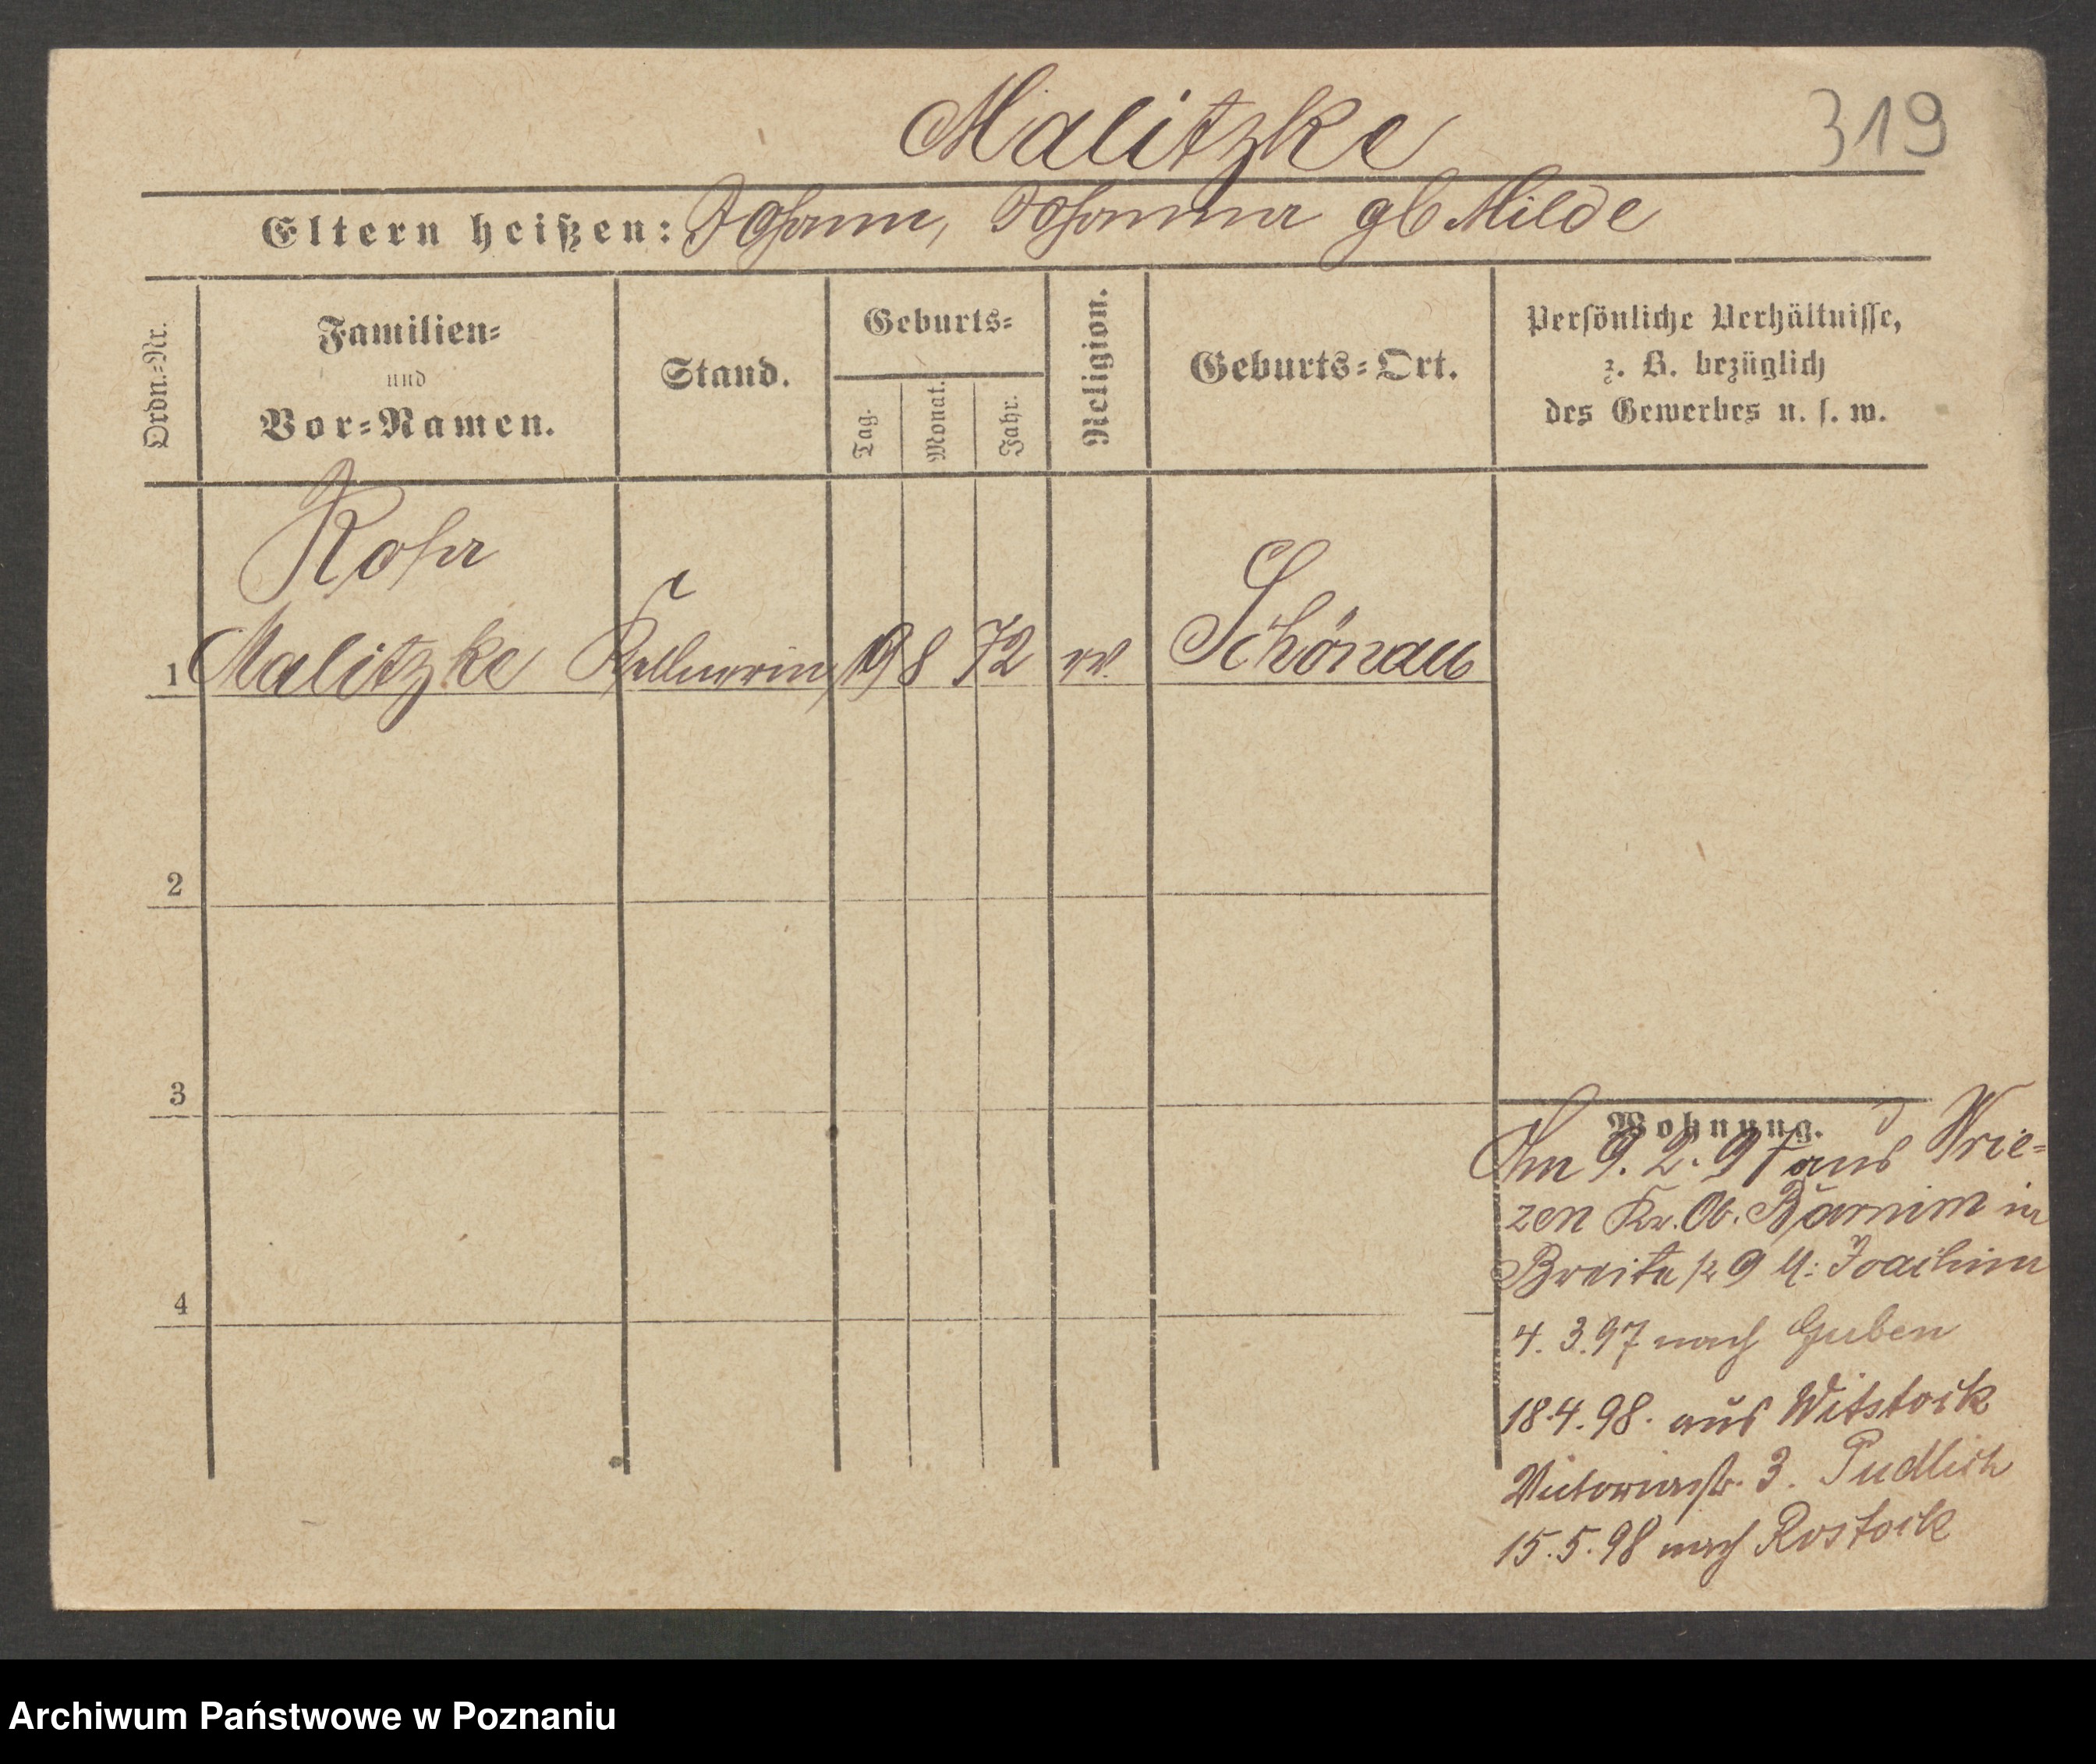 Malitzke
319
Eltern heißen: Johann, Johanna gb Milde
Ordn.=Nr.
Familien=
und
Vor=Namen.
Stand.
Geburts=
Tag.
Monat.
Jahr.
Religion.
Geburts=Ort.
Persönliche Verhältnisse,
z. B. bezüglich
des Gewerbes u. s. w.
Rohr
1 Malitzke Kellnerin 19 8 72 Schönau
2
3
4
Wohnung.
Am 9. 2. 97 aus Wrie=
zen Kr. Ob. Barnim in
Breite 9 Joachim
4. 3. 97 nach Guben
18.4.98. aus Witstock
Victoriastr. 3. Pudlich
15.5.98 nach Rostock
Archiwum Państwowe w Poznaniu